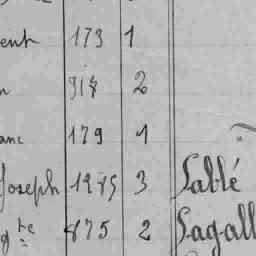 ent 173 1
n 918 2
anc 179 1
Joseph 1285 3 Sablé
gte 875 2 Sagall